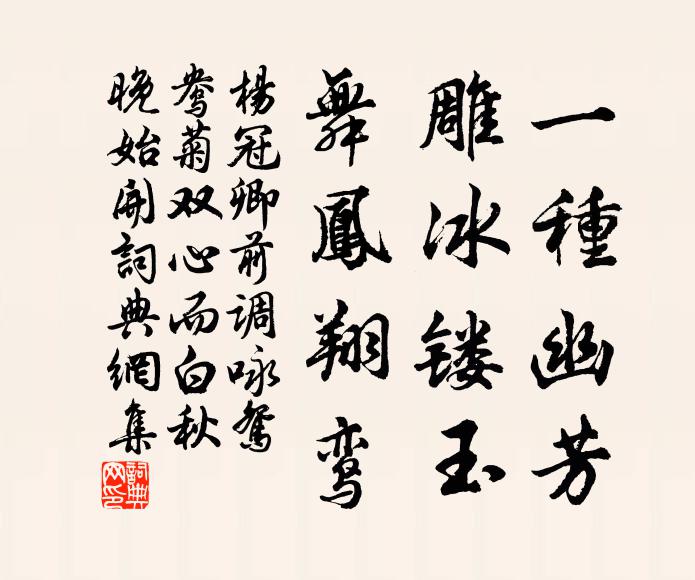 一種幽芳
雕冰镂玉
舞鳳翔鸾
楊冠卿前调咏鸳
鸯菊双心而白秋
晚始開詞典網集
詞典网印